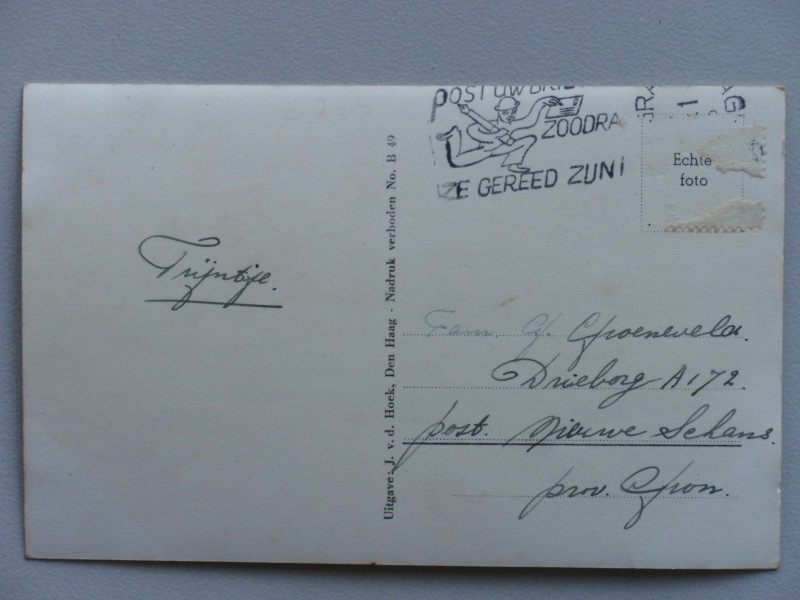 POST UW BRIE
ZOODRA
ZE GEREED ZIJN!
Echte
foto
Trijntje.
Uitgave: J. v. d. Hoek, Den Haag - Nadruk verboden No. B 49
Fam. Y. Groeneveld.
Drieborg A 172.
post. Nieuwe Schans.
prov. Gron.